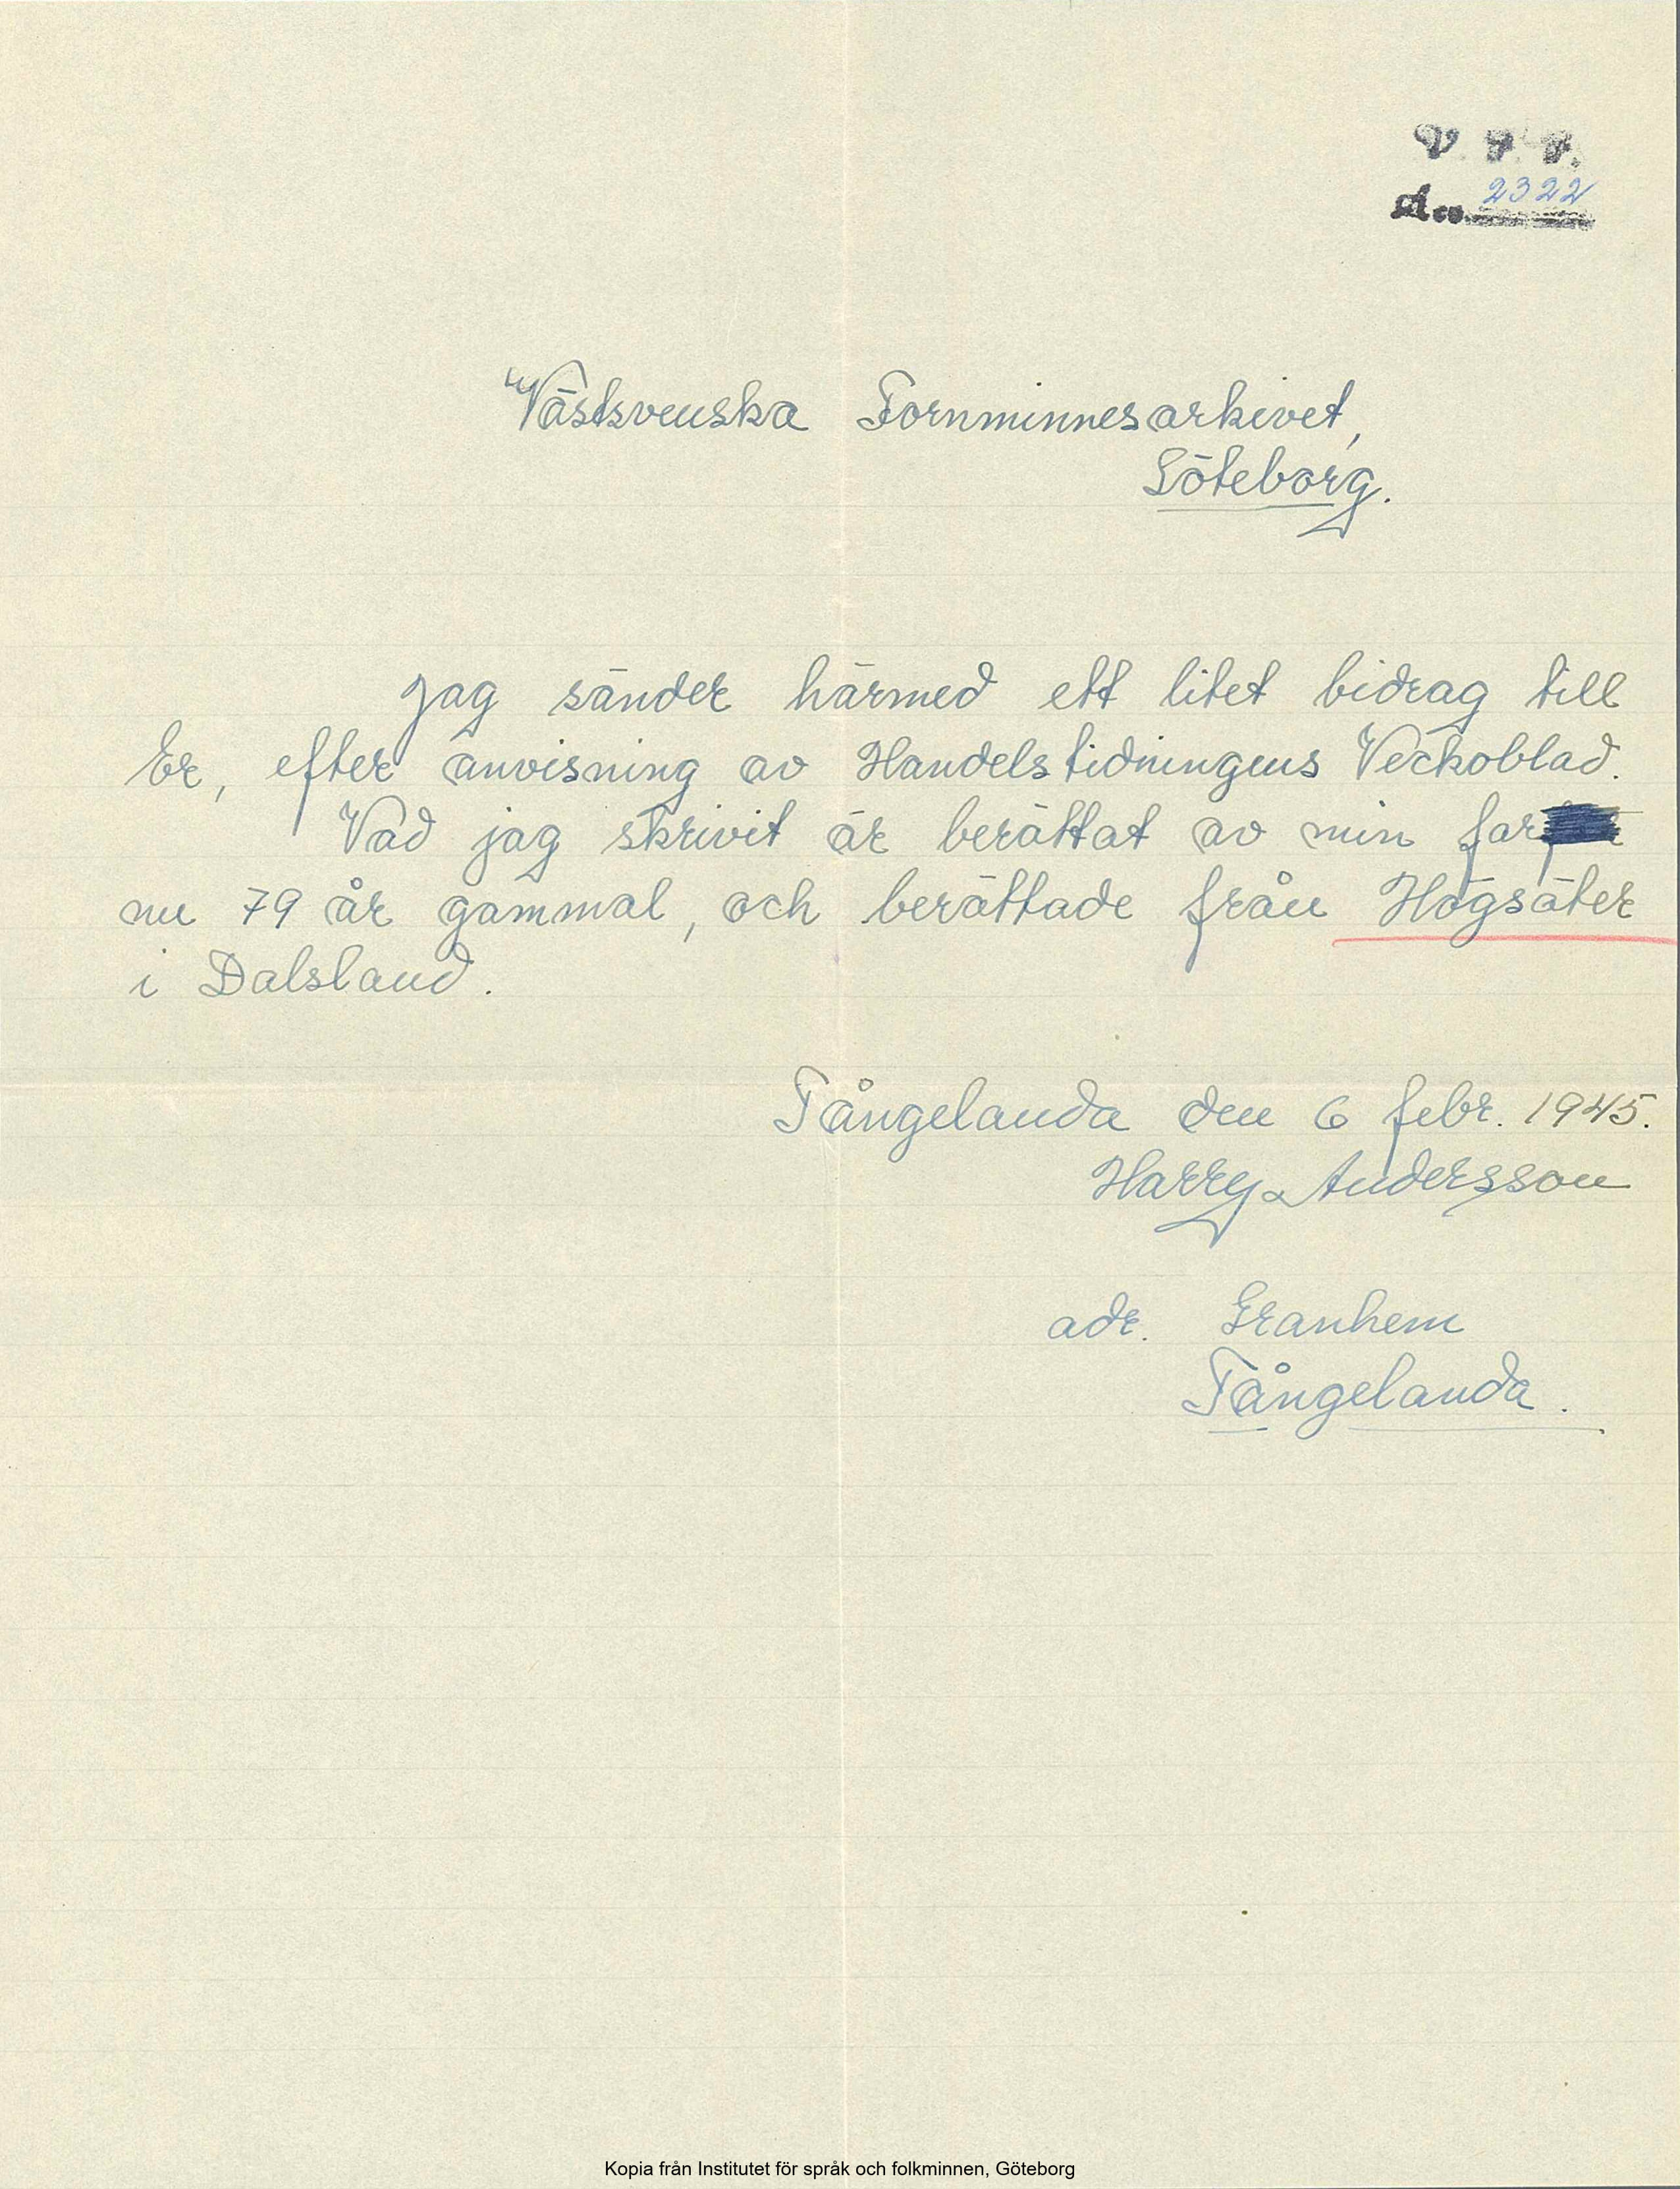 V. F. F.
Acc. 2322
Västsvenska Fornminnesarkivet,
Göteborg.
Jag sänder härmed ett litet bidrag till
Er, efter anvisning av Handelstidningens Veckoblad.
Vad jag skrivit är berättat av min far
nu 79 år gammal, och berättade från Högsäter
i Dalsland.
Tångelanda den 6 febr. 1945.
Harry Andersson
adr. Granhem
Tångelanda.
Kopia från Institutet för språk och folkminnen, Göteborg